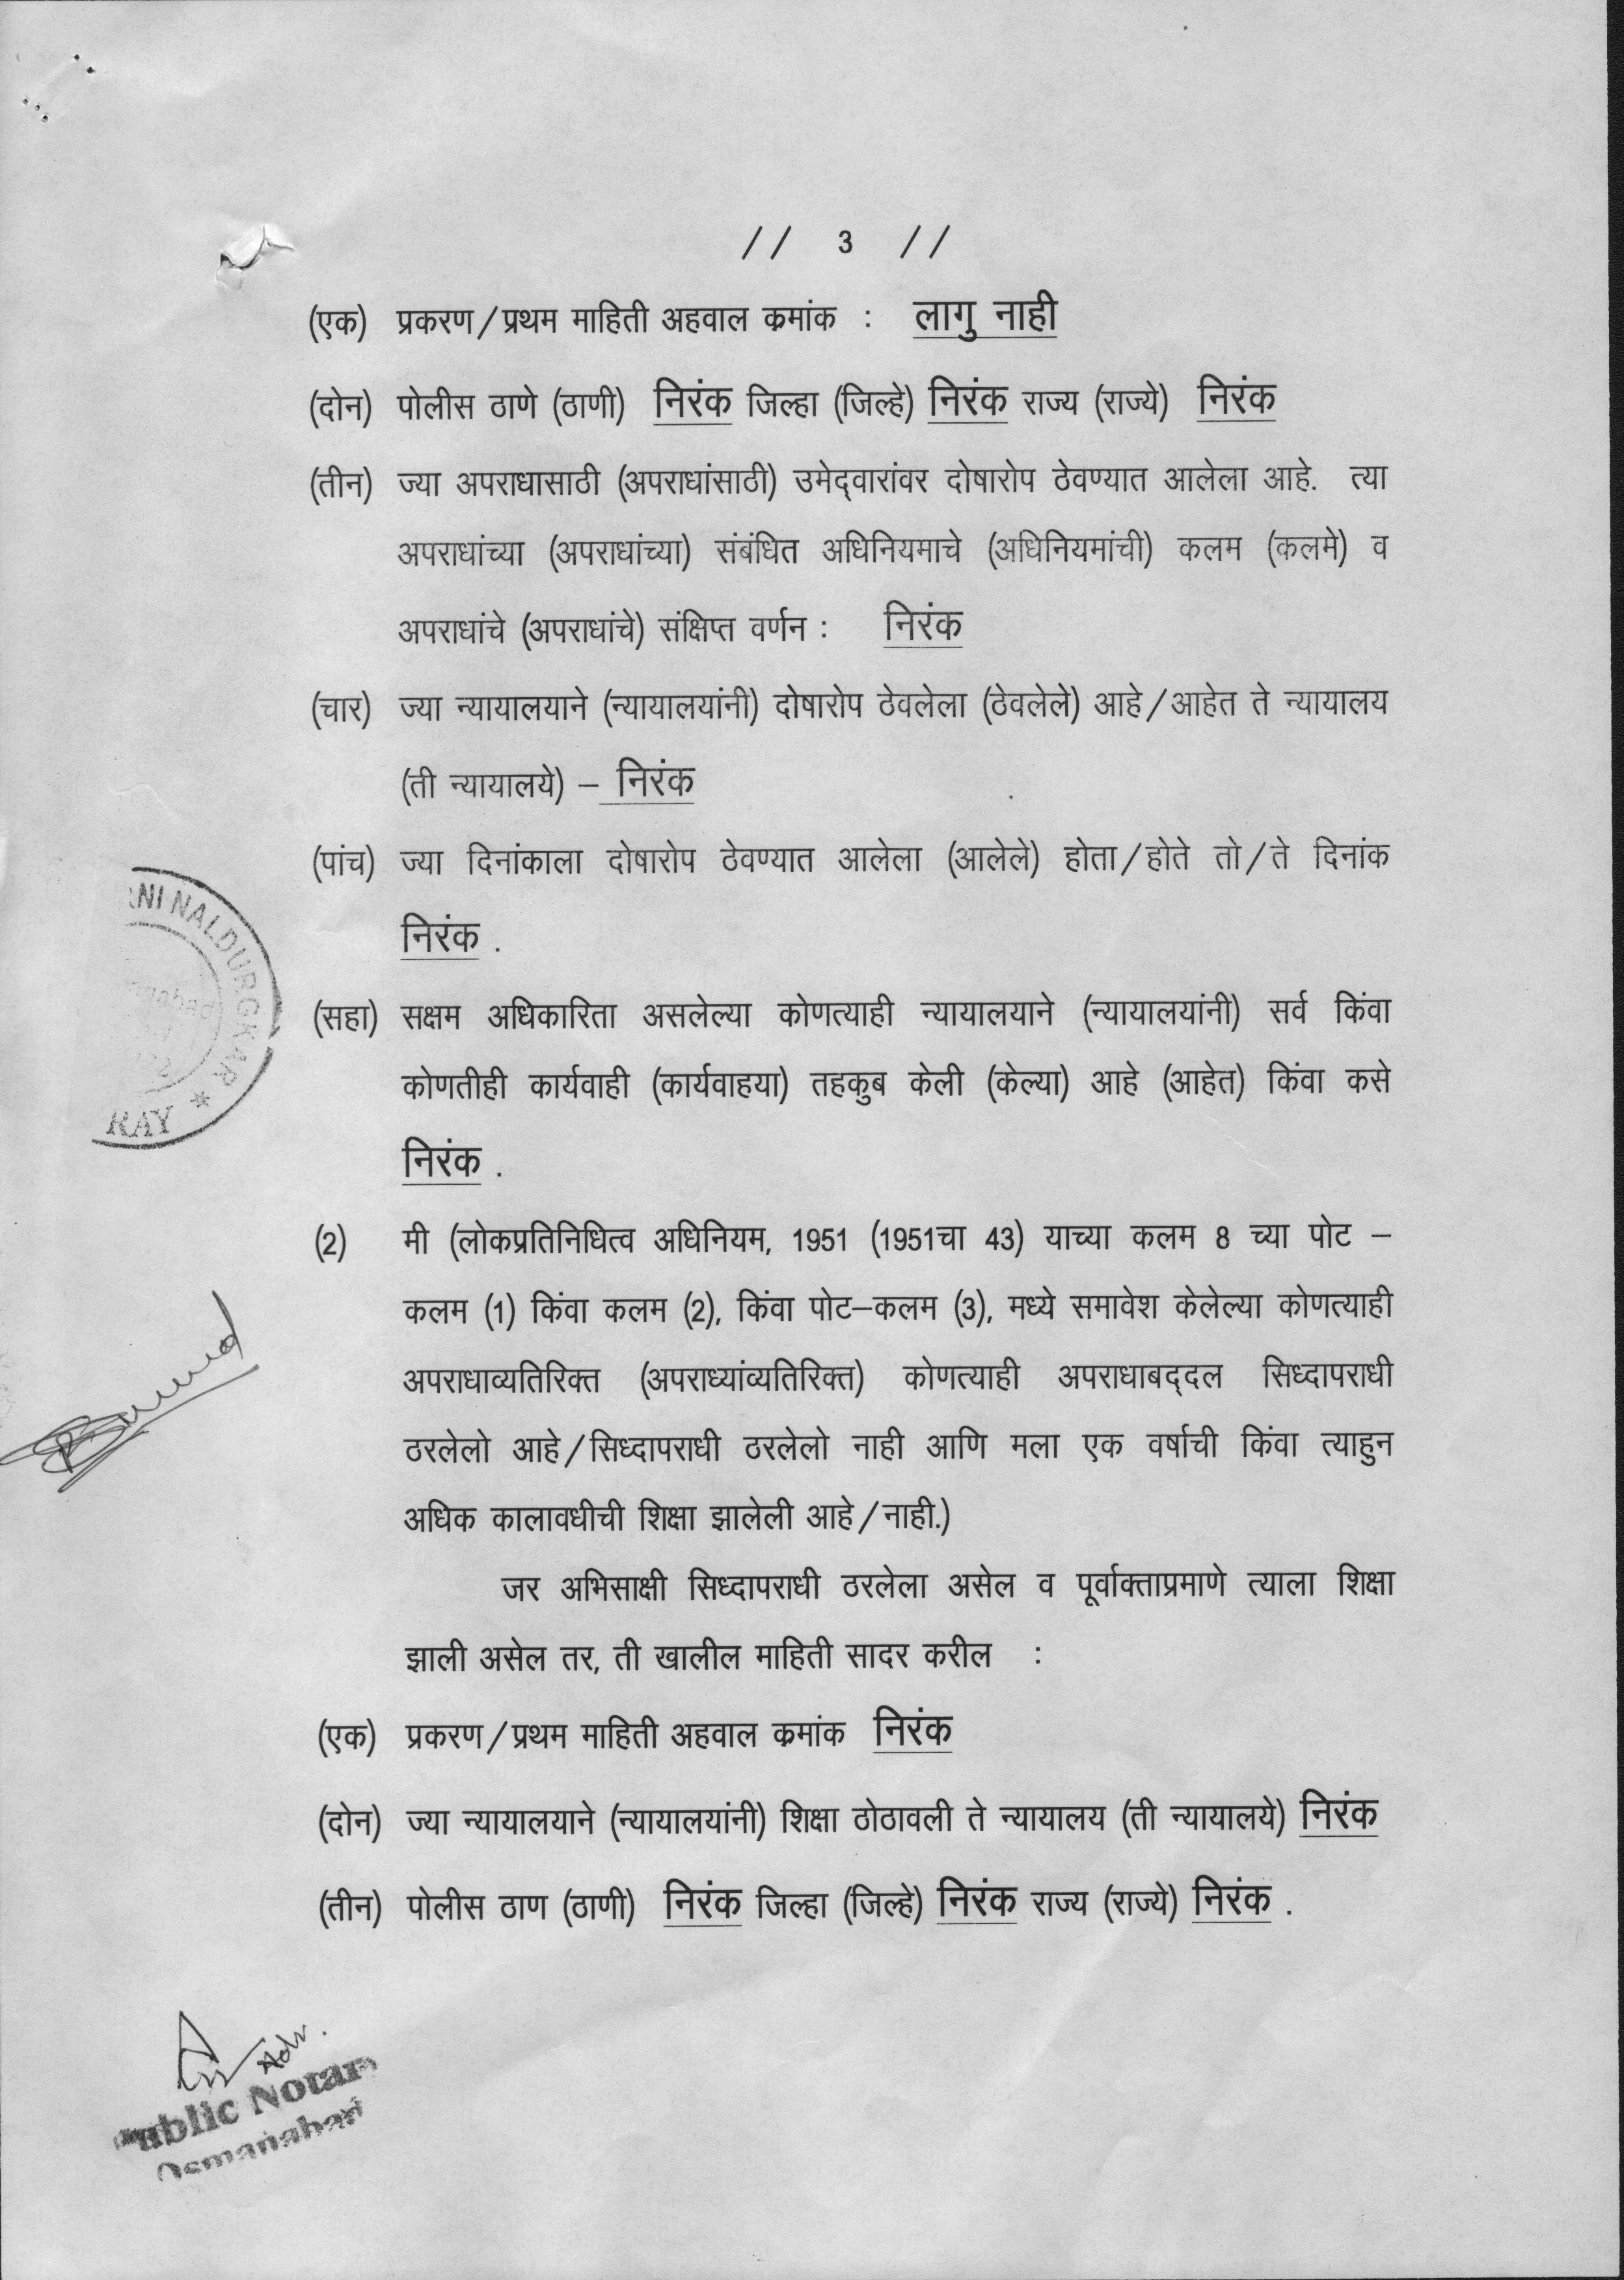 // 3 //
(एक) प्रकरण/प्रथम माहिती अहवाल क्रमांक : लागु नाही
(दोन) पोलीस ठाणे (ठाणी) निरंक जिल्हा (जिल्हे) निरंक राज्य (राज्ये) निरंक
(तीन) ज्या अपराधासाठी (अपराधांसाठी) उमेद्वारांवर दोषारोप ठेवण्यात आलेला आहे. त्या
अपराधांच्या (अपराधांच्या) संबंधित अधिनियमाचे (अधिनियमांची) कलम (कलमे) व
अपराधांचे (अपराधांचे) संक्षिप्त वर्णन : निरंक
(चार) ज्या न्यायालयाने (न्यायालयांनी) दोषारोप ठेवलेला (ठेवलेले) आहे/आहेत ते न्यायालय
(ती न्यायालये) – निरंक
(पांच) ज्या दिनांकाला दोषारोप ठेवण्यात आलेला (आलेले) होता/होते तो/ते दिनांक
निरंक .
(सहा) सक्षम अधिकारिता असलेल्या कोणत्याही न्यायालयाने (न्यायालयांनी) सर्व किंवा
कोणतीही कार्यवाही (कार्यवाहया) तहकुब केली (केल्या) आहे (आहेत) किंवा कसे
निरंक .
(2) मी (लोकप्रतिनिधित्व अधिनियम, 1951 (1951चा 43) याच्या कलम 8 च्या पोट –
कलम (1) किंवा कलम (2), किंवा पोट–कलम (3), मध्ये समावेश केलेल्या कोणत्याही
अपराधाव्यतिरिक्त (अपराध्यांव्यतिरिक्त) कोणत्याही अपराधाबद्दल सिध्दापराधी
ठरलेलो आहे/सिध्दापराधी ठरलेलो नाही आणि मला एक वर्षाची किंवा त्याहुन
अधिक कालावधीची शिक्षा झालेली आहे/नाही.)
जर अभिसाक्षी सिध्दापराधी ठरलेला असेल व पूर्वाक्ताप्रमाणे त्याला शिक्षा
झाली असेल तर, ती खालील माहिती सादर करील :
(एक) प्रकरण/प्रथम माहिती अहवाल क्रमांक निरंक
(दोन) ज्या न्यायालयाने (न्यायालयांनी) शिक्षा ठोठावली ते न्यायालय (ती न्यायालये) निरंक
(तीन) पोलीस ठाण (ठाणी) निरंक जिल्हा (जिल्हे) निरंक राज्य (राज्ये) निरंक .
NALDURGKAR *
RAY
Adv.
Public Notary
Osmanabad